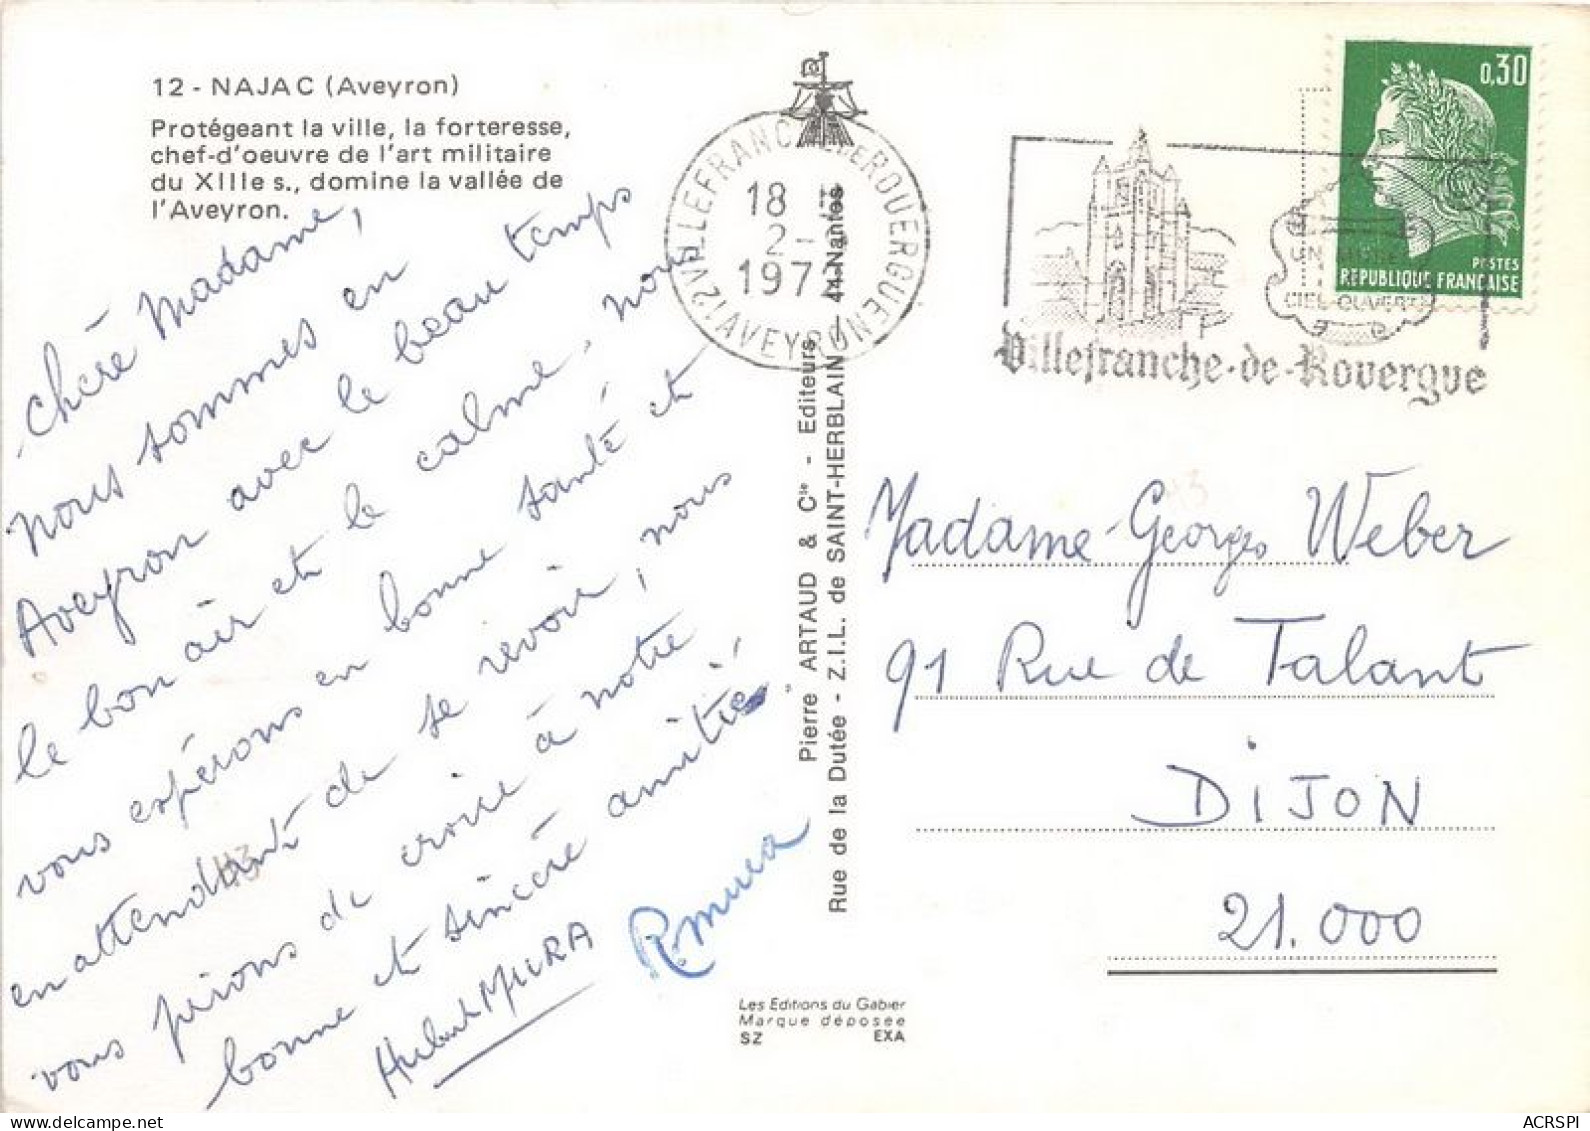 12 - NAJAC (Aveyron)
Protégeant la ville, la forteresse,
chef-d'oeuvre de l'art militaire
du XIIIe s., domine la vallée de
l'Aveyron.
chère Madame,
nous sommes en
Aveyron avec le beau temps
le bon air et le calme, nous
vous espérons en bonne santé et
en attendant de se revoir, nous
vous prions de croire à notre
bonne et sincère amitié
Hubert MURA
RMura
43
Pierre ARTAUD & Cie - Editeurs
Rue de la Dutée - Z.I.L. de SAINT-HERBLAIN / 44-Nantes
Les Editions du Gabier
Marque déposée
SZ EXA
12 VILLEFRANCHE DE ROUERGUE
AVEYRON
18 H
2 -
197
UN
CIEL OUVERT
Villefranche-de-Rouergue
0,30
POSTES
REPUBLIQUE FRANÇAISE
43
Madame Georges Weber
91 Rue de Talant
DIJON
21.000
ACRSPI